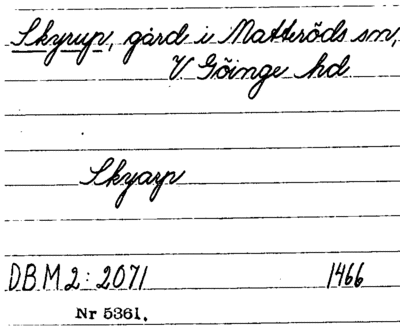 Skyrup, gård i Matteröds sn,
V Göinge hd
Skyarp
DBM 2: 2071 1466
Nr 5361.